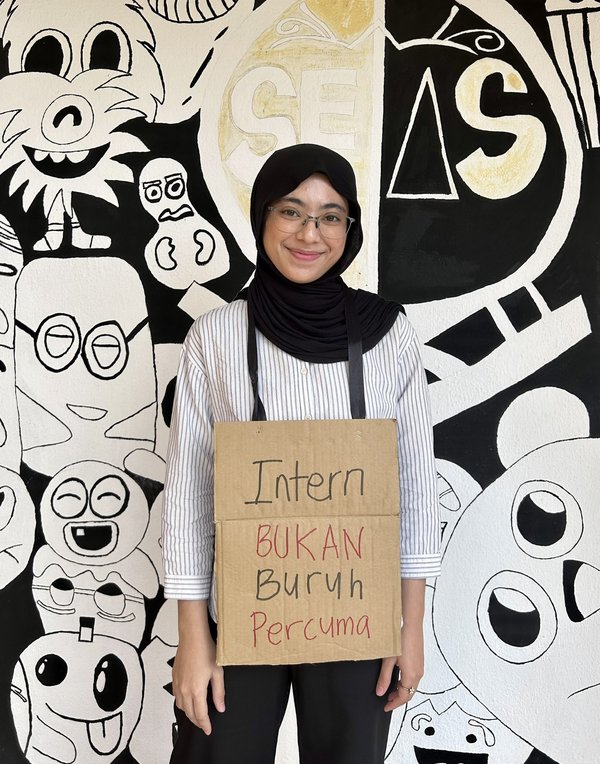 SEAS
Intern
BUKAN
Buruh
Percuma